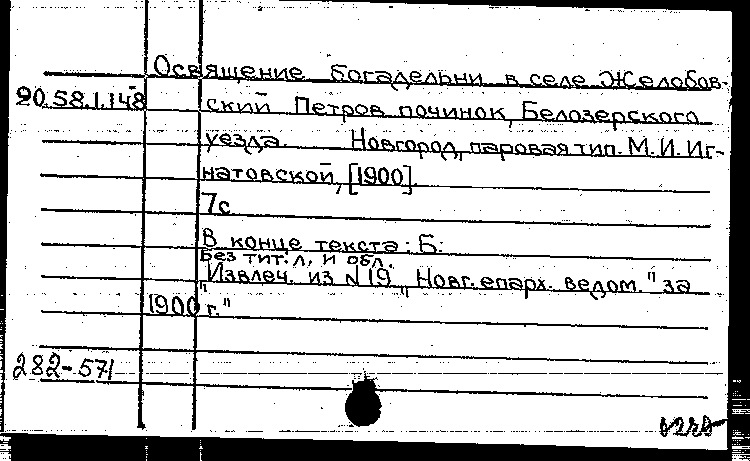 Освящение богадельни в селе Желобов-
20.58.1.148 ский Петров починок, Белозерского
уезда. Новгород, паровая тип. М. И. Иг-
натовской, [1900].
7с
В конце текста: Б:
Без тит. л. и обл.
"Извлеч. из N 19 "Новг. епарх. ведом." за
1900 г."
282-571